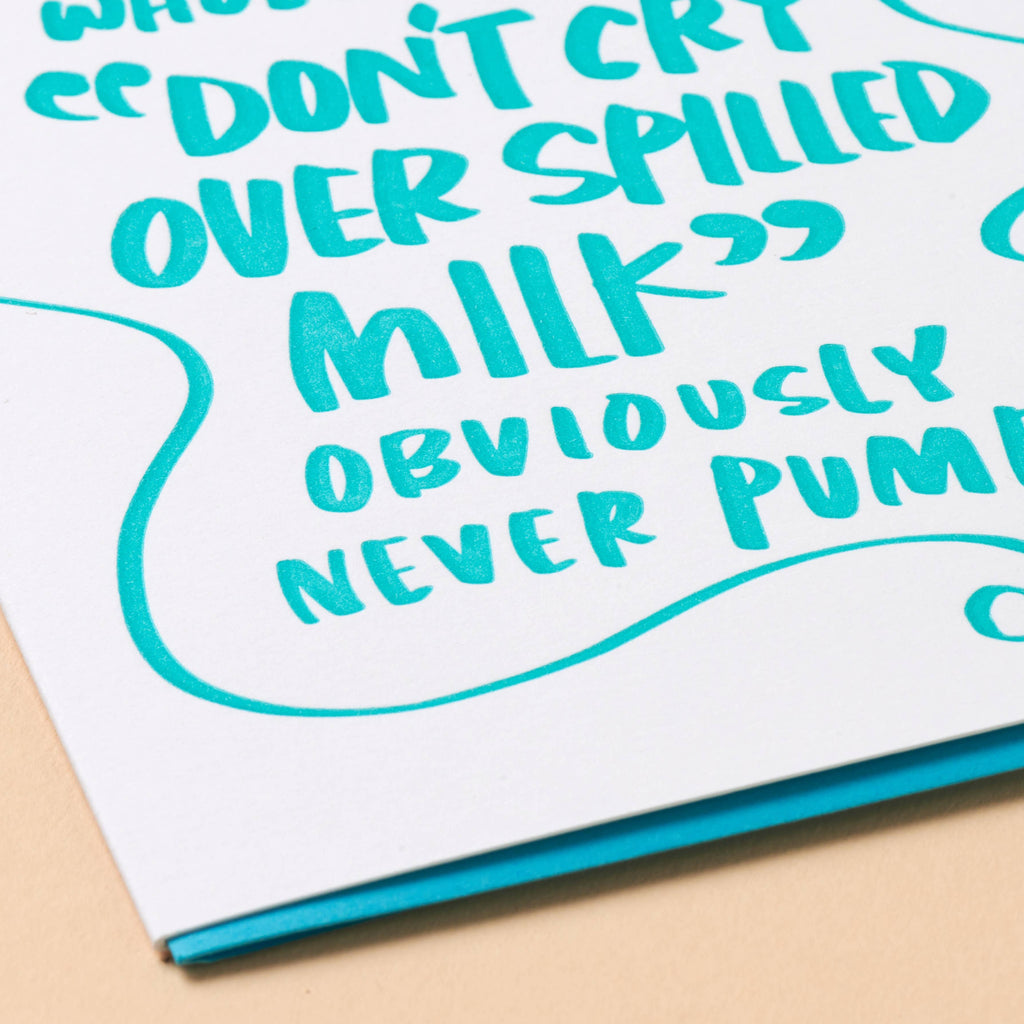 “DON'T CRY
OVER SPILLED
MILK”
OBVIOUSLY
NEVER